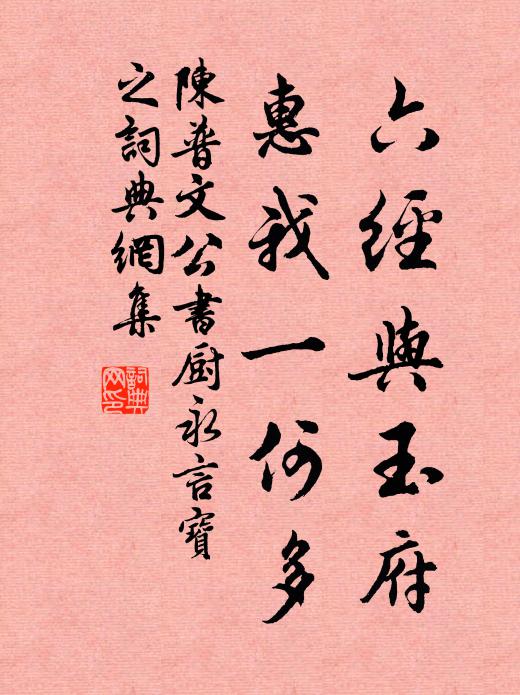 六經與玉府
惠我一何多
陳普文公書厨永言寶
之詞典網集
詞典網印